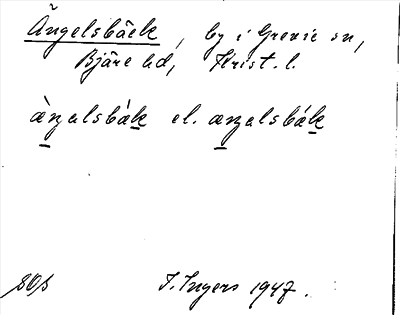 Ängelsbäck, by i Grevie sn,
Bjäre hd, Krist. l.
ànalsbák el. analsbák
SOf
I. Ingers 1947.